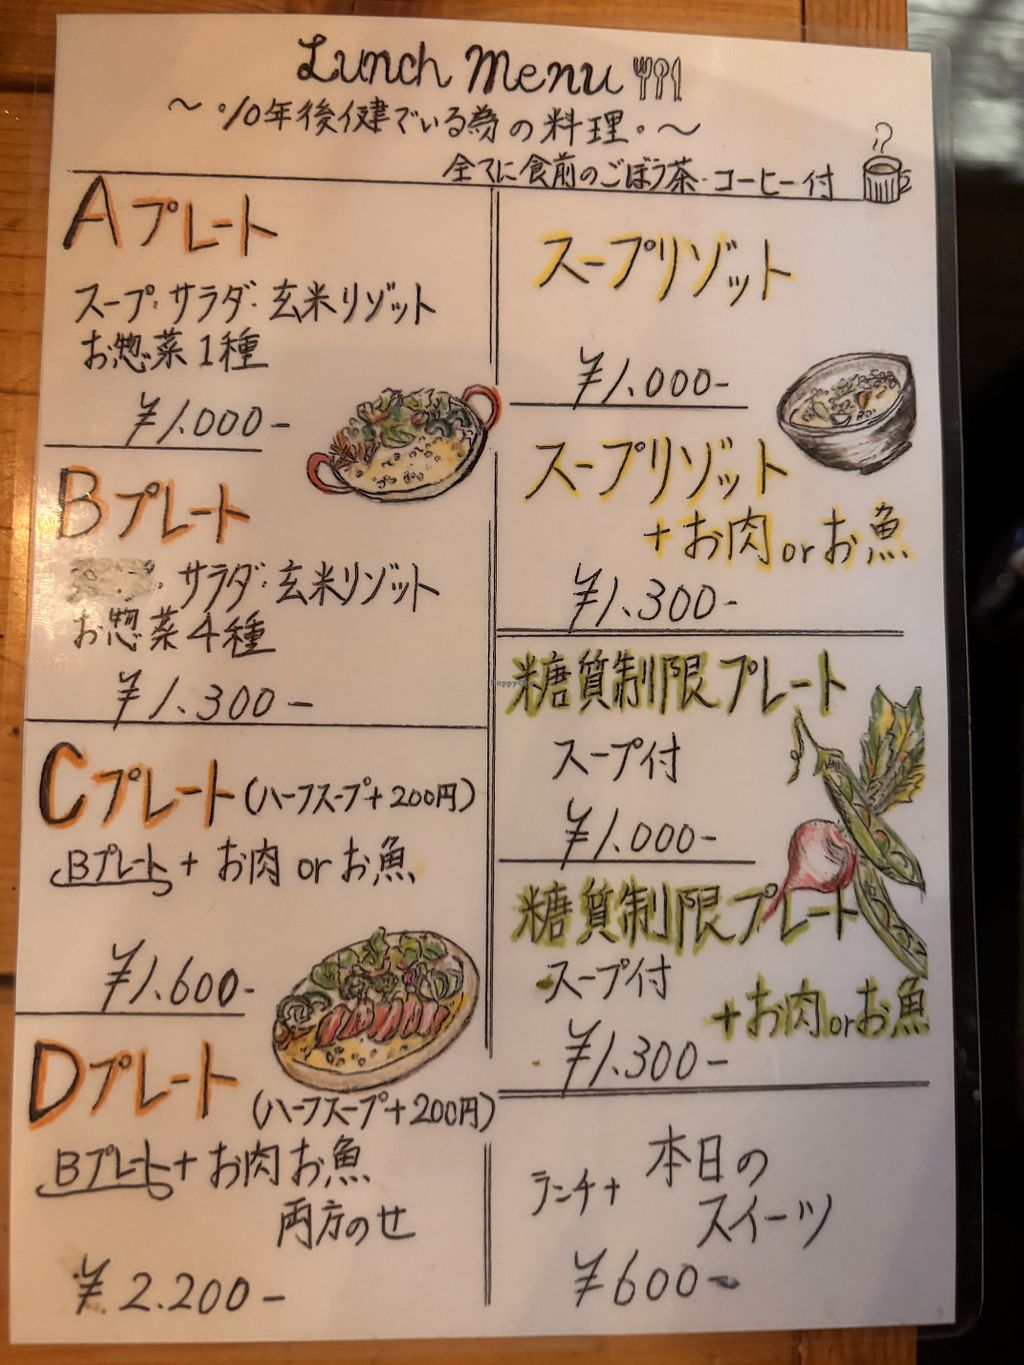 Lunch Menu
〜10年後健でいる為の料理.〜
全てに食前のごぼう茶・コーヒー付
Aプレート
スープ・サラダ・玄米リゾット
お惣菜1種
¥1.000-
Bプレート
・サラダ・玄米リゾット
お惣菜4種
¥1.300-
Cプレート(ハーフスープ+200円)
Bプレート+お肉orお魚
¥1.600-
Dプレート
(ハーフスープ+200円)
Bプレート+お肉お魚
両方のせ
¥2.200-
スープリゾット
¥1.000-
スープリゾット
+お肉orお魚
¥1.300-
糖質制限プレート
スープ付
¥1.000-
糖質制限プレート
スープ付
+お肉orお魚
¥1.300-
ランチ+本日の
スイーツ
¥600-